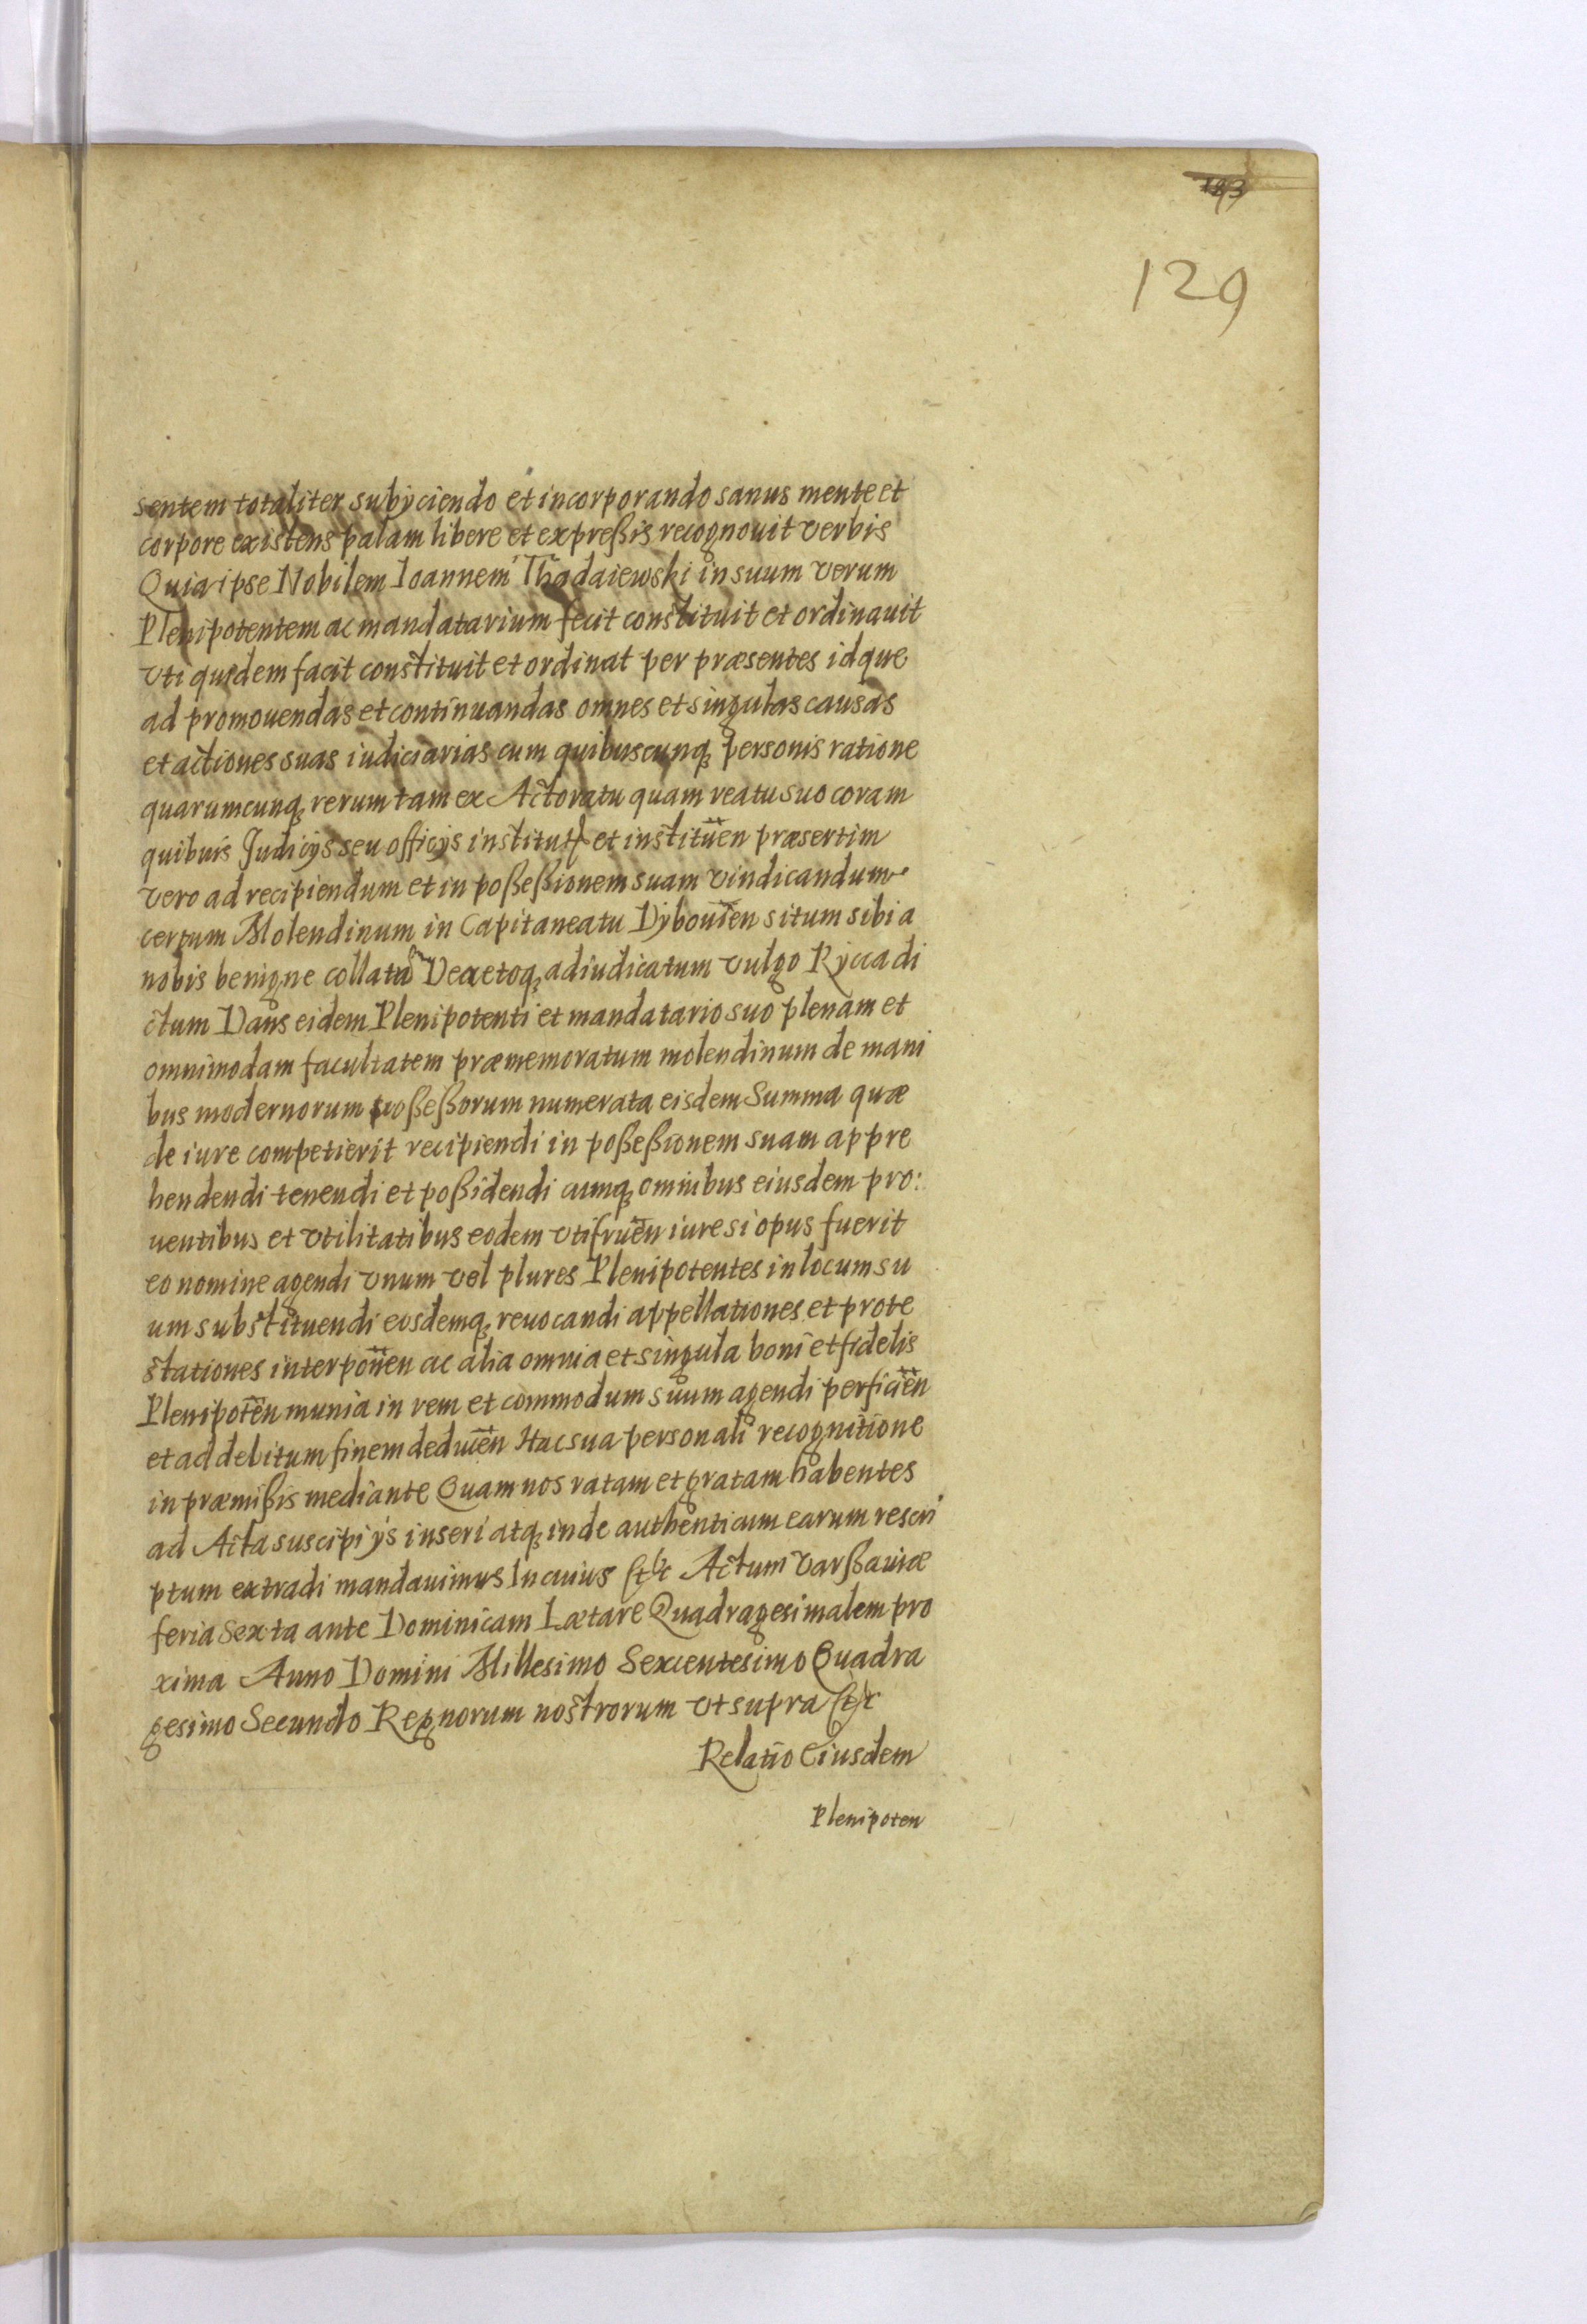 129
sentem totaliter subÿciendo et incorporando sanus mente et
corpore existens palam libere et expreßis recognouit verbis
Quia ipse Nobilem Ioannem Thadaiewski in suum verum
Plenipotentem ac mandatarium fecit constituit et ordinauit
vti quidem facit constituit et ordinat per præsentes idque
ad promouendas et continuandas omnes et singulas causas
et actiones suas iudiciarias cum quibuscunq, personis ratione
quarumcunq, rerum tam ex Actoratu quam reatu suo coram
quibuis Judicÿs seu officÿs institut et institūēn præsertim
vero ad recipiendum et in poßeßionem suam vindicandum
certum Molendinum in Capitaneatu Dÿbouīēn situm sibi a
nobis benigne collatum Decretoq, adiudicatum vulgo Rÿcca di
ctum Dans eidem Plenipotenti et mandatario suo plenam et
omnimodam facultatem præmemoratum molendinum de mani
bus modernorum poßeßorum numerata eisdem Summa quæ
de iure competierit recipiendi in poßeßionem suam appre
hendendi tenendi et poßidendi cumq, omnibus eiusdem pro:
uentibus et vtilitatibus eodem vtifruēn iure si opus fuerit
eo nomine agendi vnum vel plures Plenipotentes in locum su
um substituendi eosdemq, reuocandi appellationes et prote
stationes interpōnēn ac alia omnia et singula boni et fidelis
Plenipotēn munia in rem et commodum suum agendi perficīēn
et ad debitum finem deducēn Hac sua personali recognitione
in præmißis mediante Quam nos ratam et gratam habentes
ad Acta suscipi ÿs inseri atq, inde authenticum earum rescri
ptum extradi mandauimus In cuius &c Actum Varßauiæ
feria Sexta ante Dominicam Lætare Quadragesimalem pro
xima Anno Domini Millesimo Sexcentesimo Quadra
gesimo Secundo Regnorum nostrorum vt supra &c
Relatio Eiusdem
Plenipoten